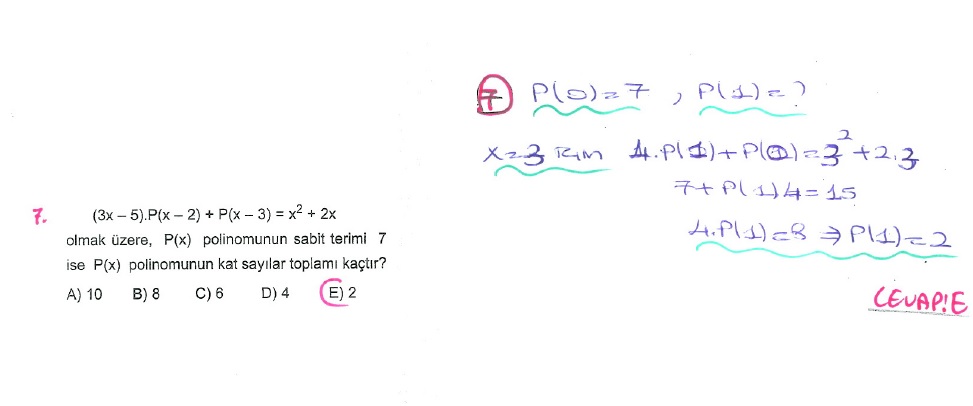 7. (3x – 5).P(x – 2) + P(x – 3) = x² + 2x
olmak üzere, P(x) polinomunun sabit terimi 7
ise P(x) polinomunun kat sayılar toplamı kaçtır?
A) 10 B) 8 C) 6 D) 4 E) 2
7 P(0)=7 , P(1)=?
x=3 için 4.P(1)+P(0)=3²+2.3
7+P(1)4=15
4.P(1)=8 ⇒ P(1)=2
CEVAP:E